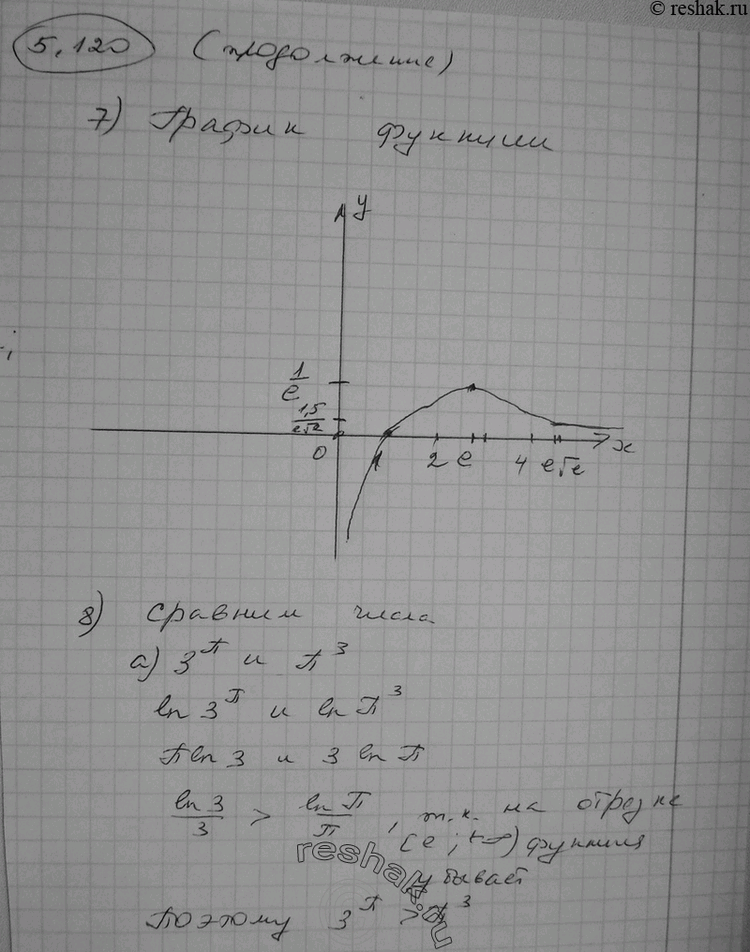 © reshak.ru
5.120 (продолжение)
7) График функции
y
1/e
1,5/e√e
0 1 2 e 4 e√e x
8) Сравним числа
а) 3^π и π^3
ln 3^π и ln π^3
π ln 3 и 3 ln π
ln 3/3 > ln π/π, т.к. на отрезке
(e; +∞) функция
убывает
Поэтому 3^π > π^3
reshak.ru